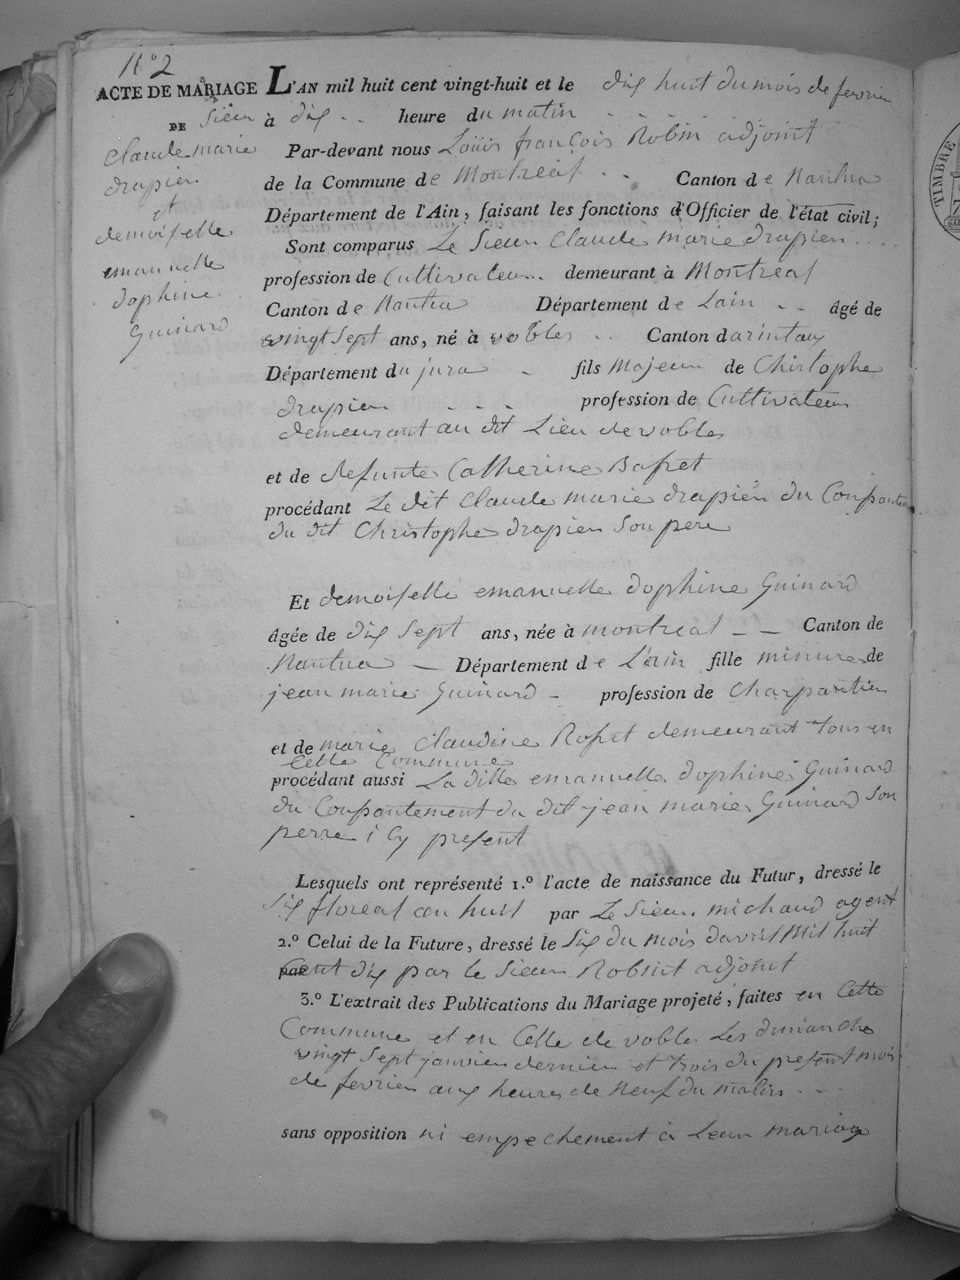 N° 2
ACTE DE MARIAGE
DE Sieur
Claude marie
drapier
et
demoiselle
emanuelle
dophine
Guinard
L'AN mil huit cent vingt-huit et le dix huit du mois de fevrier
à dix .. heure du matin
Par-devant nous Louis françois Robin adjoint
de la Commune de Montreal .. Canton de Nantua
Département de l'Ain, faisant les fonctions d'Officier de l'état civil;
Sont comparus Le Sieur Claude marie drapier ....
profession de Cultivateur.. demeurant à Montreal
Canton de Nantua Département de Lain .. âgé de
vingt Sept ans, né à vobles .. Canton darintau
Département du jura - fils Majeur de Christophe
drapier . . . profession de Cultivateur
demeurant au dit Lieu de vobles
et de defunte Catherine
procédant Le dit Claude marie drapier du
du dit Christophe drapier Son pere
Et demoiselle emanuelle dophine Guinard
âgée de dix Sept ans, née à montreal - - Canton de
Nantua - Département de L'ain fille minure de
jean marie Guinard - profession de Charpantier
et de marie Claudine demeurant tous en
Cette Commune
procédant aussi La ditte emanuella dophine Guinard
du Consantement du dit jean marie Guinard Son
perre i Cy present
Lesquels ont représenté 1.º l'acte de naissance du Futur, dressé le
Six floreal an huit par Le Sieur michaud agent
2.º Celui de la Future, dressé le Six du mois davril Mil huit
par Cent dix par le Sieur Robin adjoint
3.º L'extrait des Publications du Mariage projeté, faites en Cette
Commune et en Celle de vobles Les dimanche
vingt Sept janvier dernier et trois du present mois
de fevrier aux heures de Neuf du matin ..
sans opposition ni empechement à Leur mariage
TIMBRE